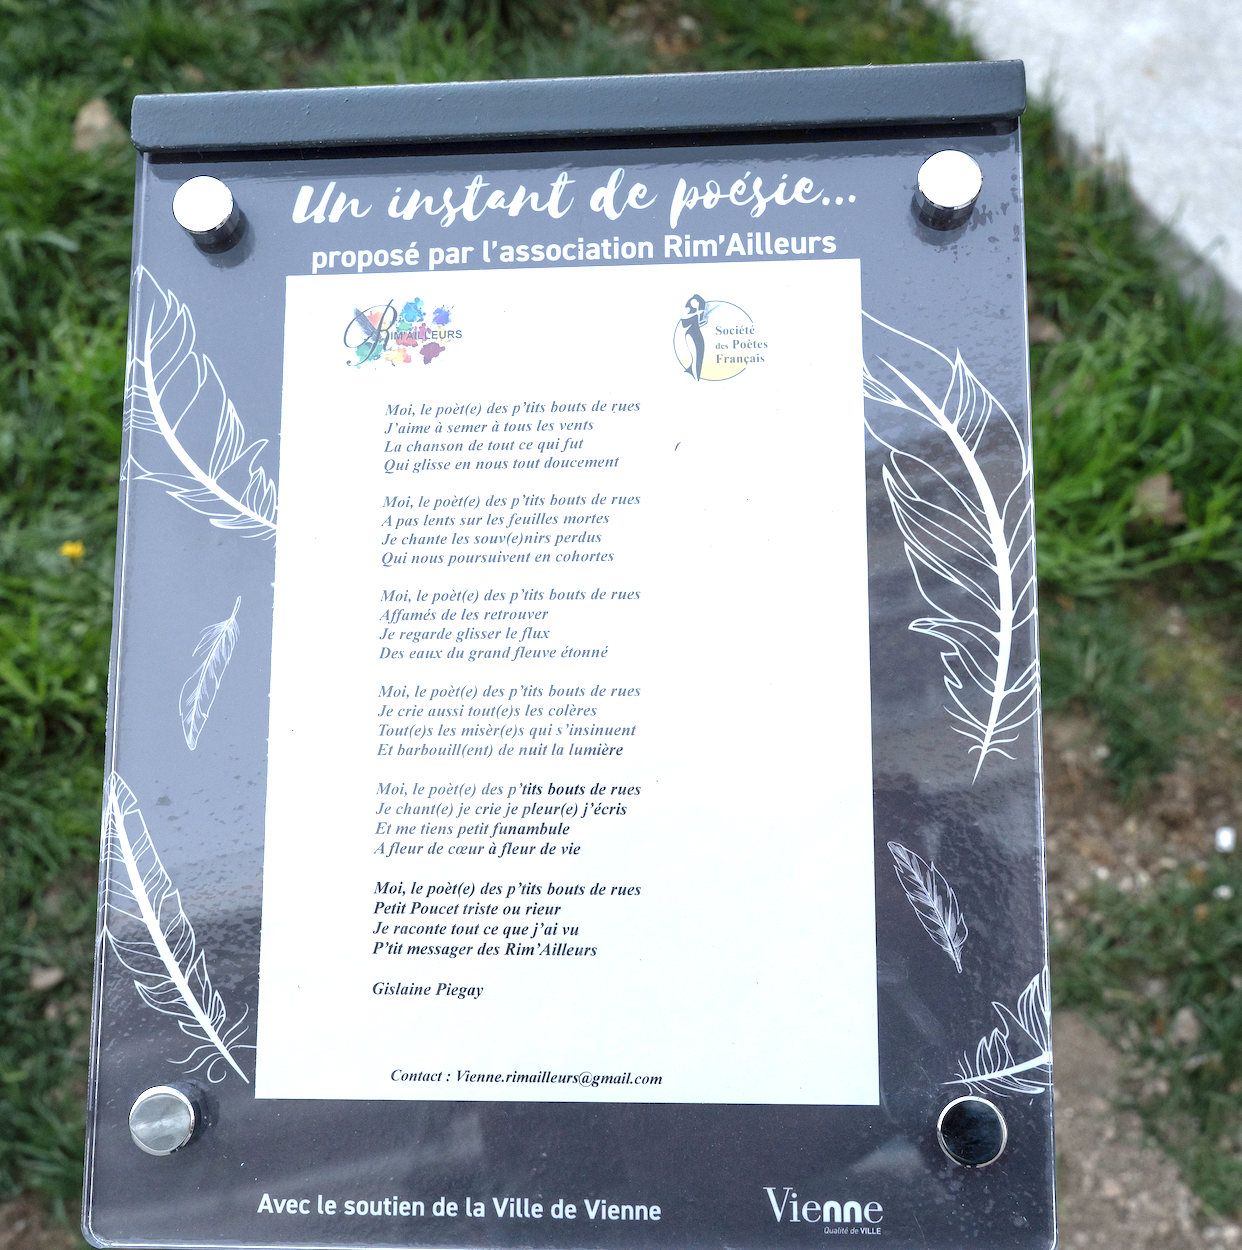 Un instant de poésie...
proposé par l'association Rim'Ailleurs
RIM'AILLEURS
Société
des Poètes
Français
Moi, le poèt(e) des p'tits bouts de rues
J'aime à semer à tous les vents
La chanson de tout ce qui fut
Qui glisse en nous tout doucement
Moi, le poèt(e) des p'tits bouts de rues
A pas lents sur les feuilles mortes
Je chante les souv(e)nirs perdus
Qui nous poursuivent en cohortes
Moi, le poèt(e) des p'tits bouts de rues
Affamés de les retrouver
Je regarde glisser le flux
Des eaux du grand fleuve étonné
Moi, le poèt(e) des p'tits bouts de rues
Je crie aussi tout(e)s les colères
Tout(e)s les misèr(e)s qui s'insinuent
Et barbouill(ent) de nuit la lumière
Moi, le poèt(e) des p'tits bouts de rues
Je chant(e) je crie je pleur(e) j'écris
Et me tiens petit funambule
A fleur de cœur à fleur de vie
Moi, le poèt(e) des p'tits bouts de rues
Petit Poucet triste ou rieur
Je raconte tout ce que j'ai vu
P'tit messager des Rim'Ailleurs
Gislaine Piegay
Contact : Vienne.rimailleurs@gmail.com
Avec le soutien de la Ville de Vienne
Vienne
Qualité de VILLE